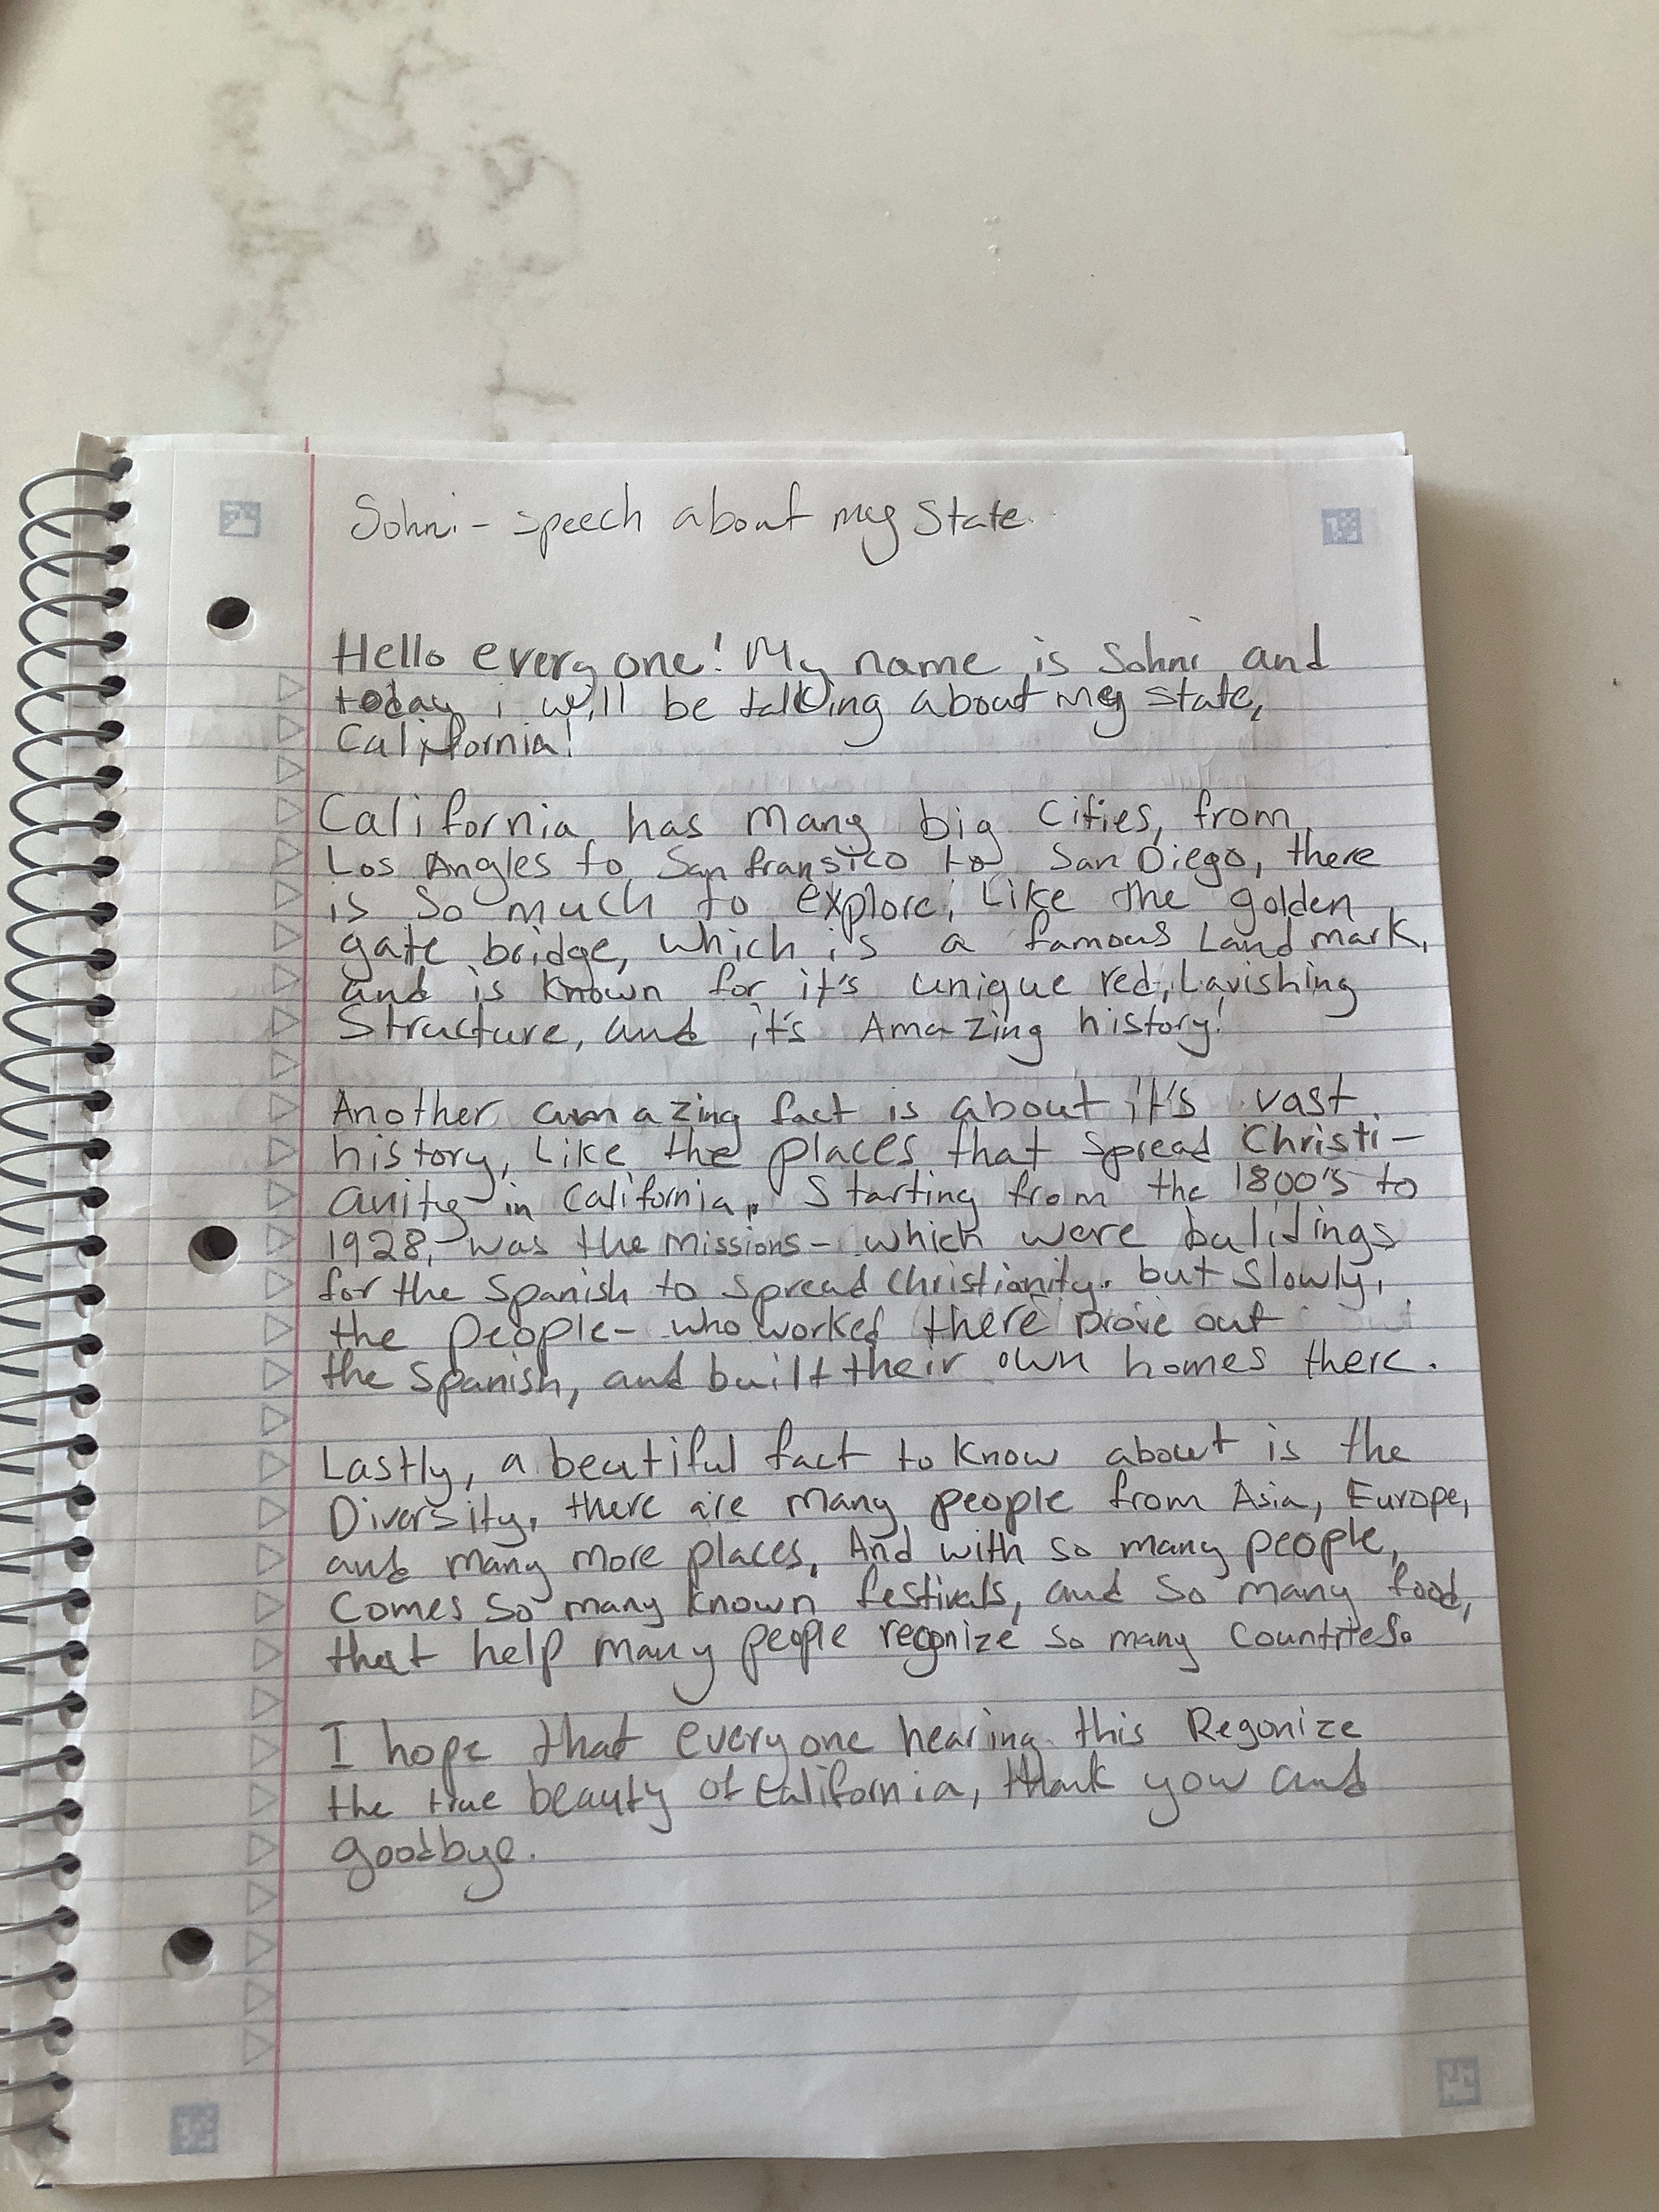 Sohni - speech about my State.
Hello every one! My name is Sohni and
today i will be talking about my state,
California!
California has many big Cities, from
Los Angles to San fransico to San Diego, there
is so much to explore, Like the golden
gate bridge, which is a famous Land mark,
and is known for it's unique red, Lavishing
Structure, and it's Amazing history!
Another amazing fact is about it's vast
history, Like the places that spread Christi-
anity in California. Starting from the 1800's to
1928, - was the missions - which were bulidings
for the Spanish to spread christianity. but slowly,
the people - who worked there prove out
the Spanish, and built their own homes there.
Lastly, a beutiful fact to know about is the
Diversity, there are many people from Asia, Europe,
and many more places, And with so many people,
Comes so many known festivals, and so many food,
that help many people regonize so many Countries.
I hope that every one hearing this Regonize
the true beauty of California, thank you and
goodbye.